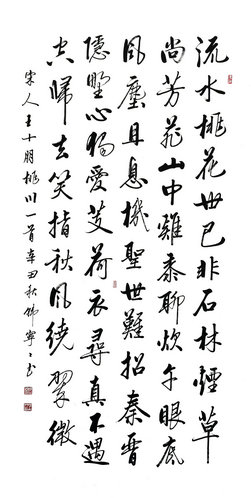 流水桃花世已非石林煙草
尚芳菲山中雞黍聊炊午眼底
風塵且息機聖世難招秦晉
隱野心獨愛芰荷衣尋真不遇
空歸去笑指秋風繞翠微
宋人王十朋桃川一首辛丑秋書